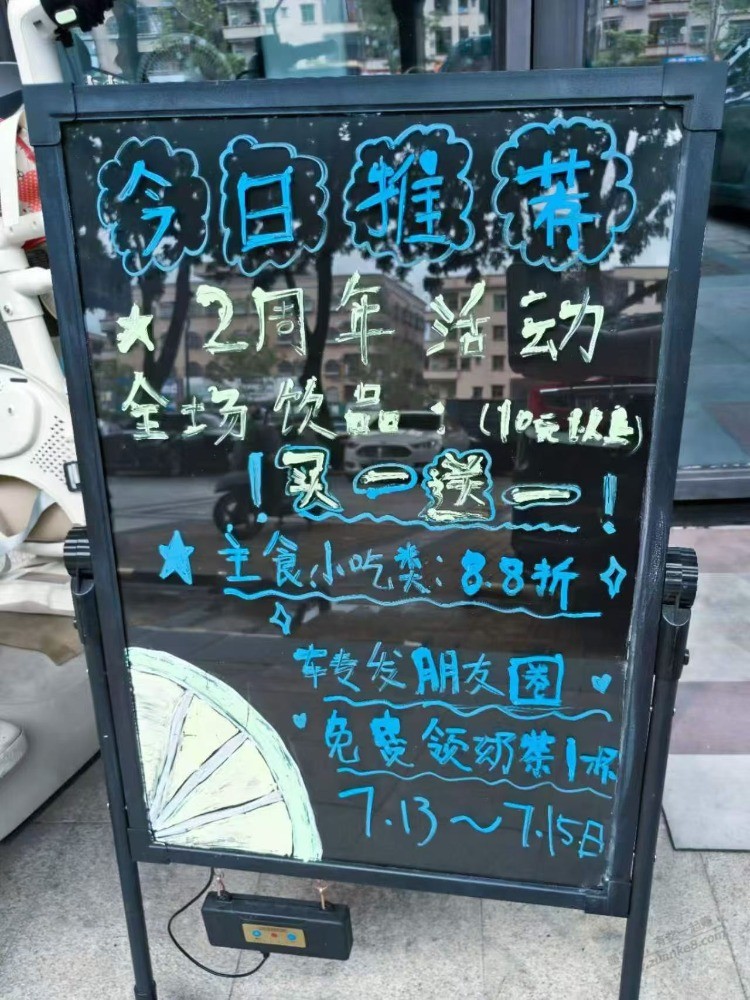 今日推荐
★2周年活动
全场饮品:(10元以上)
!买一送一!
★主食小吃类:8.8折
转发朋友圈
免费领奶茶1杯
7.13～7.15日